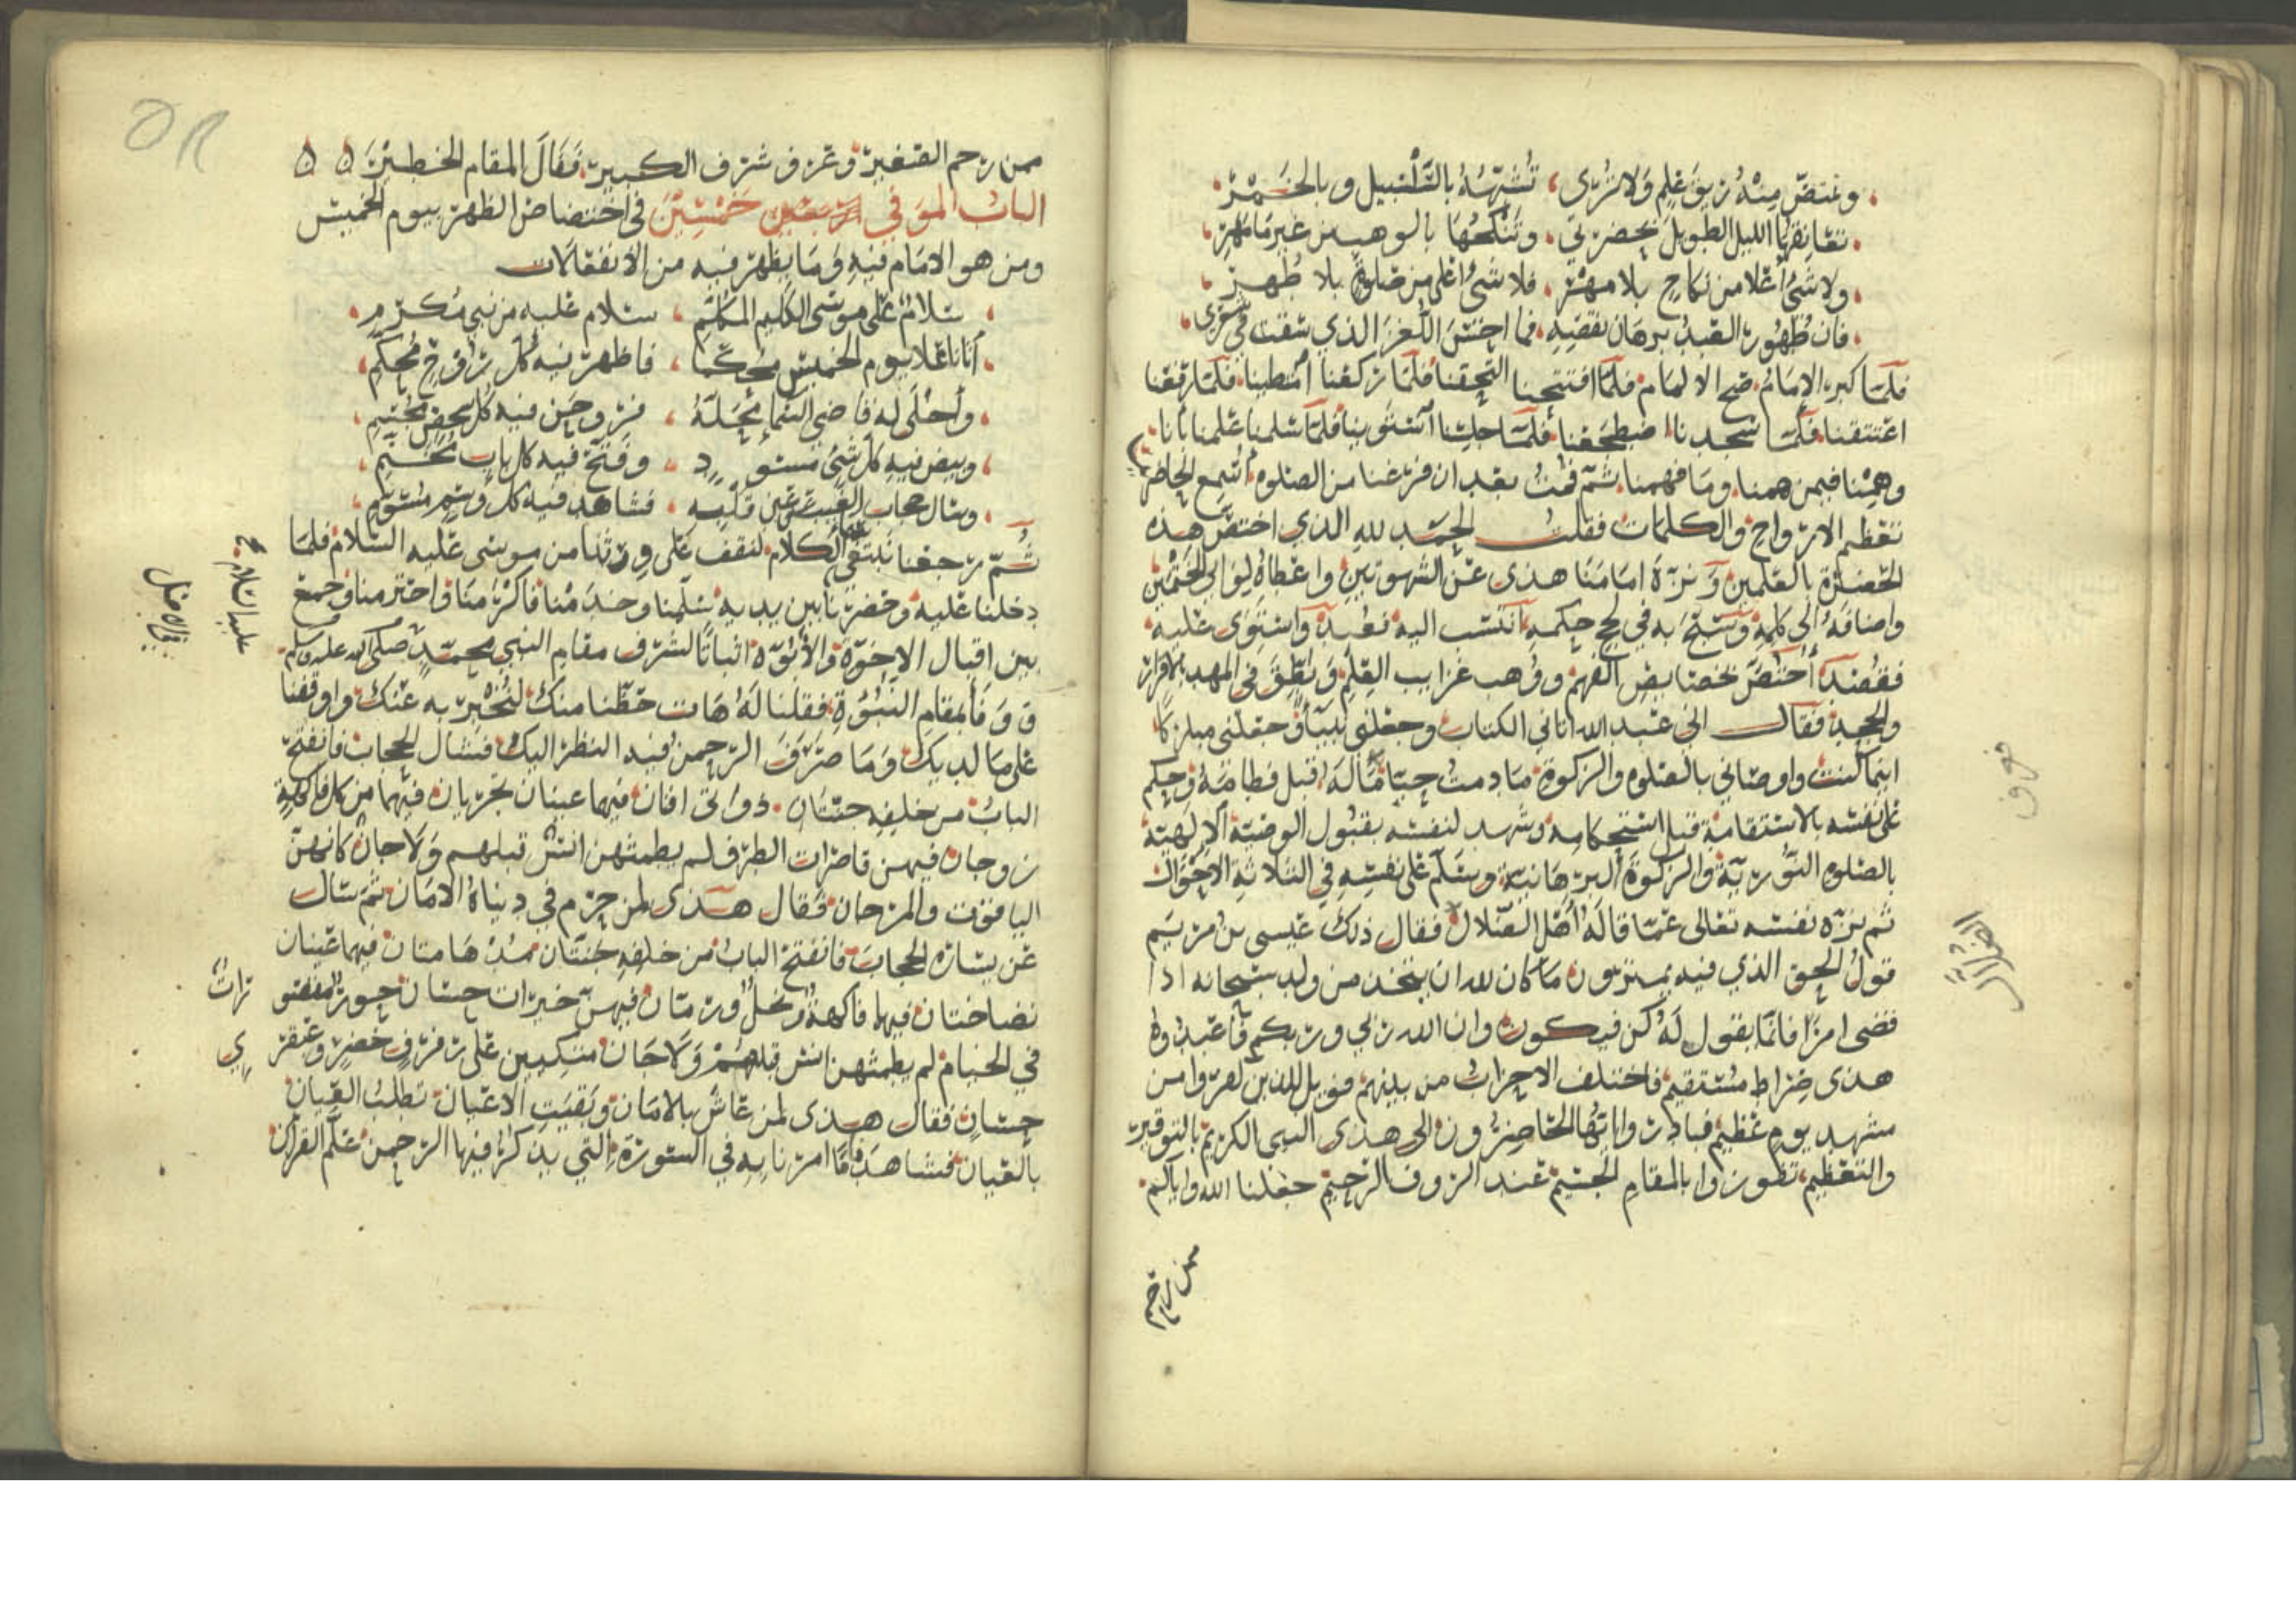 وغتض منه ريق علم ولا ترى، تشبهه بالسلسبيل وبالخمر
نعانقها الليل الطويل بحضرتي، وتنكحها بالوهب من غير ما مهر
ولا شئ أعلا من نكاح بلا مهر، فلا شئ اعلى من صلوة بلا طهر
فان ظهور العبد برهان نقضه، فما احسن اللغز الذي سقت في شعرى
فلما كبر الامام صح الالمام فلما افتتحنا التحقنا فلما ركعنا أمتطينا فلما رفعنا
اعتنقنا فلما سجدنا اضطجعنا فلما جلسنا استوينا فلما سلمنا علمنا بأنا
وهمنا فيمن همنا وما فهمنا ثم قمت بعد ان فرغنا من الصلوه أسمع الحاضرين
تعظيم الارواح والكلمات فقلت الحمد لله الذي اختص هذه
الحضرة بالعلمين ونزه امامنا هذى عن الشهوتين واعطاه لوا الختمين
واضافه الى كلمه وسبح به في لجج حكمه انتسب اليه فعبده واستوى عليه
فقصده اختص بخصايص الفهم ووهب غرايب العلم ونطق في المهد بالاقرار
والجحد فقال انى عبد الله اتاني الكتاب وجعلنى نبيا وجعلنى مباركا
اينما كنت واوصاني بالصلوه والزكوة ما دمت حيا قاله قبل فطامه وحكم
على نفسه بالاستقامة قبل استحكامه وشهد لنفسه بقبول الوصية الالهية
بالصلوه النورية والزكوة البرهانية وسلم على نفسه في الثلاثه الاحوال
ثم نزه نفسه تعالى عما قاله أهل الضلال فقال ذلك عيسى بن مريم
قول الحق الذي فيه يمترون ما كان لله ان يتخذ من ولد سبحانه اذا
قضى امرا فانما يقول له كن فيكون وان الله ربي وربكم فاعبدوه
هذى صراط مستقيم فاختلف الاحزاب من بينهم فويل للذين كفروا من
مشهد يوم عظيم فبادروا ايتها الحاضرون الى هذى النبى الكريم بالتوقير
والتعظيم تظفروا بالمقام الجسيم عند الروف الرحيم جعلنا الله واياكم
ممن رحم
ممن رحم الصغير وعرف شرف الكبير، فقال المقام الخطير
الباب الموفي خمسين في اختصاص الظهر بيوم الخميس
ومن هو الامام فيه وما يظهر فيه من الانفعالات
سلام على موسى الكليم المكلم، سلام عليه من نبي مكرم
أتانا علا يوم الخميس محكما، فاظهر فيه كل روح محكم
وأحلى له قاضى السما محله، فروحن فيه كل شخص مجسم
وبيض فيه كل شئ مسود، وفتح فيه كل باب مختم
وشال حجاب الغيب عن عين قلبه، فشاهد فيه كل وسم موسم
ثم رجعنا نبتغي الكلام لنقف على ورثنا من موسى عليه السلام فلما
دخلنا عليه وحضرنا بين يديه سلمنا وخدمنا فاكرمنا واحترمنا وجمع
بين اقبال الاخوة والأبوه اثباتا لشرف مقام النبي محمد صلى الله عليه وسلم
ووفا بمقام النبوة فقلنا له هات حظنا منك لنخبر به عنك واوقفنا
على ما لديك وما صرف الرحمن فيه النظر اليك فشال الحجاب فانفتح
الباب من خلفه جنتان ذواتى افنان فيهما عينان تجريان فيهما من كل فاكهة
زوجان فيهن قاصرات الطرف لم يطمثهن انس قبلهم ولا جان كانهن
الياقوت والمرجان فقال هذى لمن حرم في دنياه الامان ثم شال
عن يساره الحجاب فانفتح الباب من خلفه جنتان مدهامتان فيهما عينان
نضاختان فيهما فاكهة ونخل ورمان فيهن خيرات حسان حور مقصورات
في الخيام لم يطمثهن انس قبلهم ولا جان متكيين على رفرف خضر وعبقري
حسان فقال هذى لمن عاش بالامان وبقيت الاعيان تطلب العيان
بالعيان فشاهد ما امرنا به في السورة التي يذكر فيها الرحمن علم القران